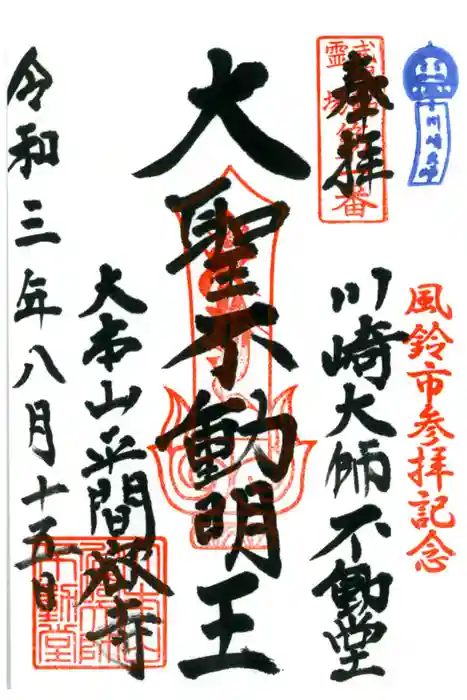 川崎大師
風鈴市参拝記念
奉拝
霊場
番
川崎大師不動堂
大聖不動明王
大本山平間寺
令和三年八月十五日
不動堂